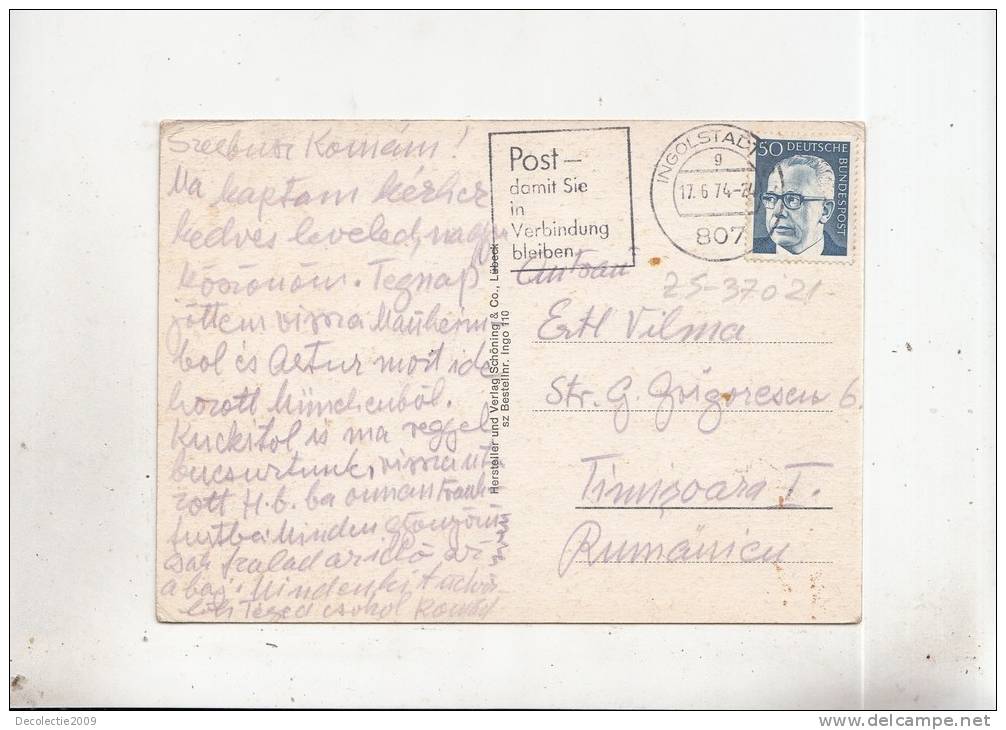 Szerbusz Komám!
Ma kaptam kézhez
kedves leveled, nagyon
köszönöm. Tegnap
jöttem vissza Mannheim
ból és Artur most ide
hozott Münchenből.
is ma reggel
bucsuztunk, vissza uta
zott H. b. ba onnan Frank
furtba. Minden gyönyörű
csak szalad az idő az
a baj. Mindenkit üdvöz
Téged csókol Komád
Post –
damit Sie
in
Verbindung
bleiben
INGOLSTADT
g
17.6.74-2
807
50 DEUTSCHE
BUNDESPOST
Hersteller und Verlag Schöning & Co., Lübeck
sz Bestellnr. Ingo 110
25-37021
Ertl Vilma
Str. G. Grigorescu 6.
Timișoara I.
Rumänien
Decolectie2009
www.delcampe.net